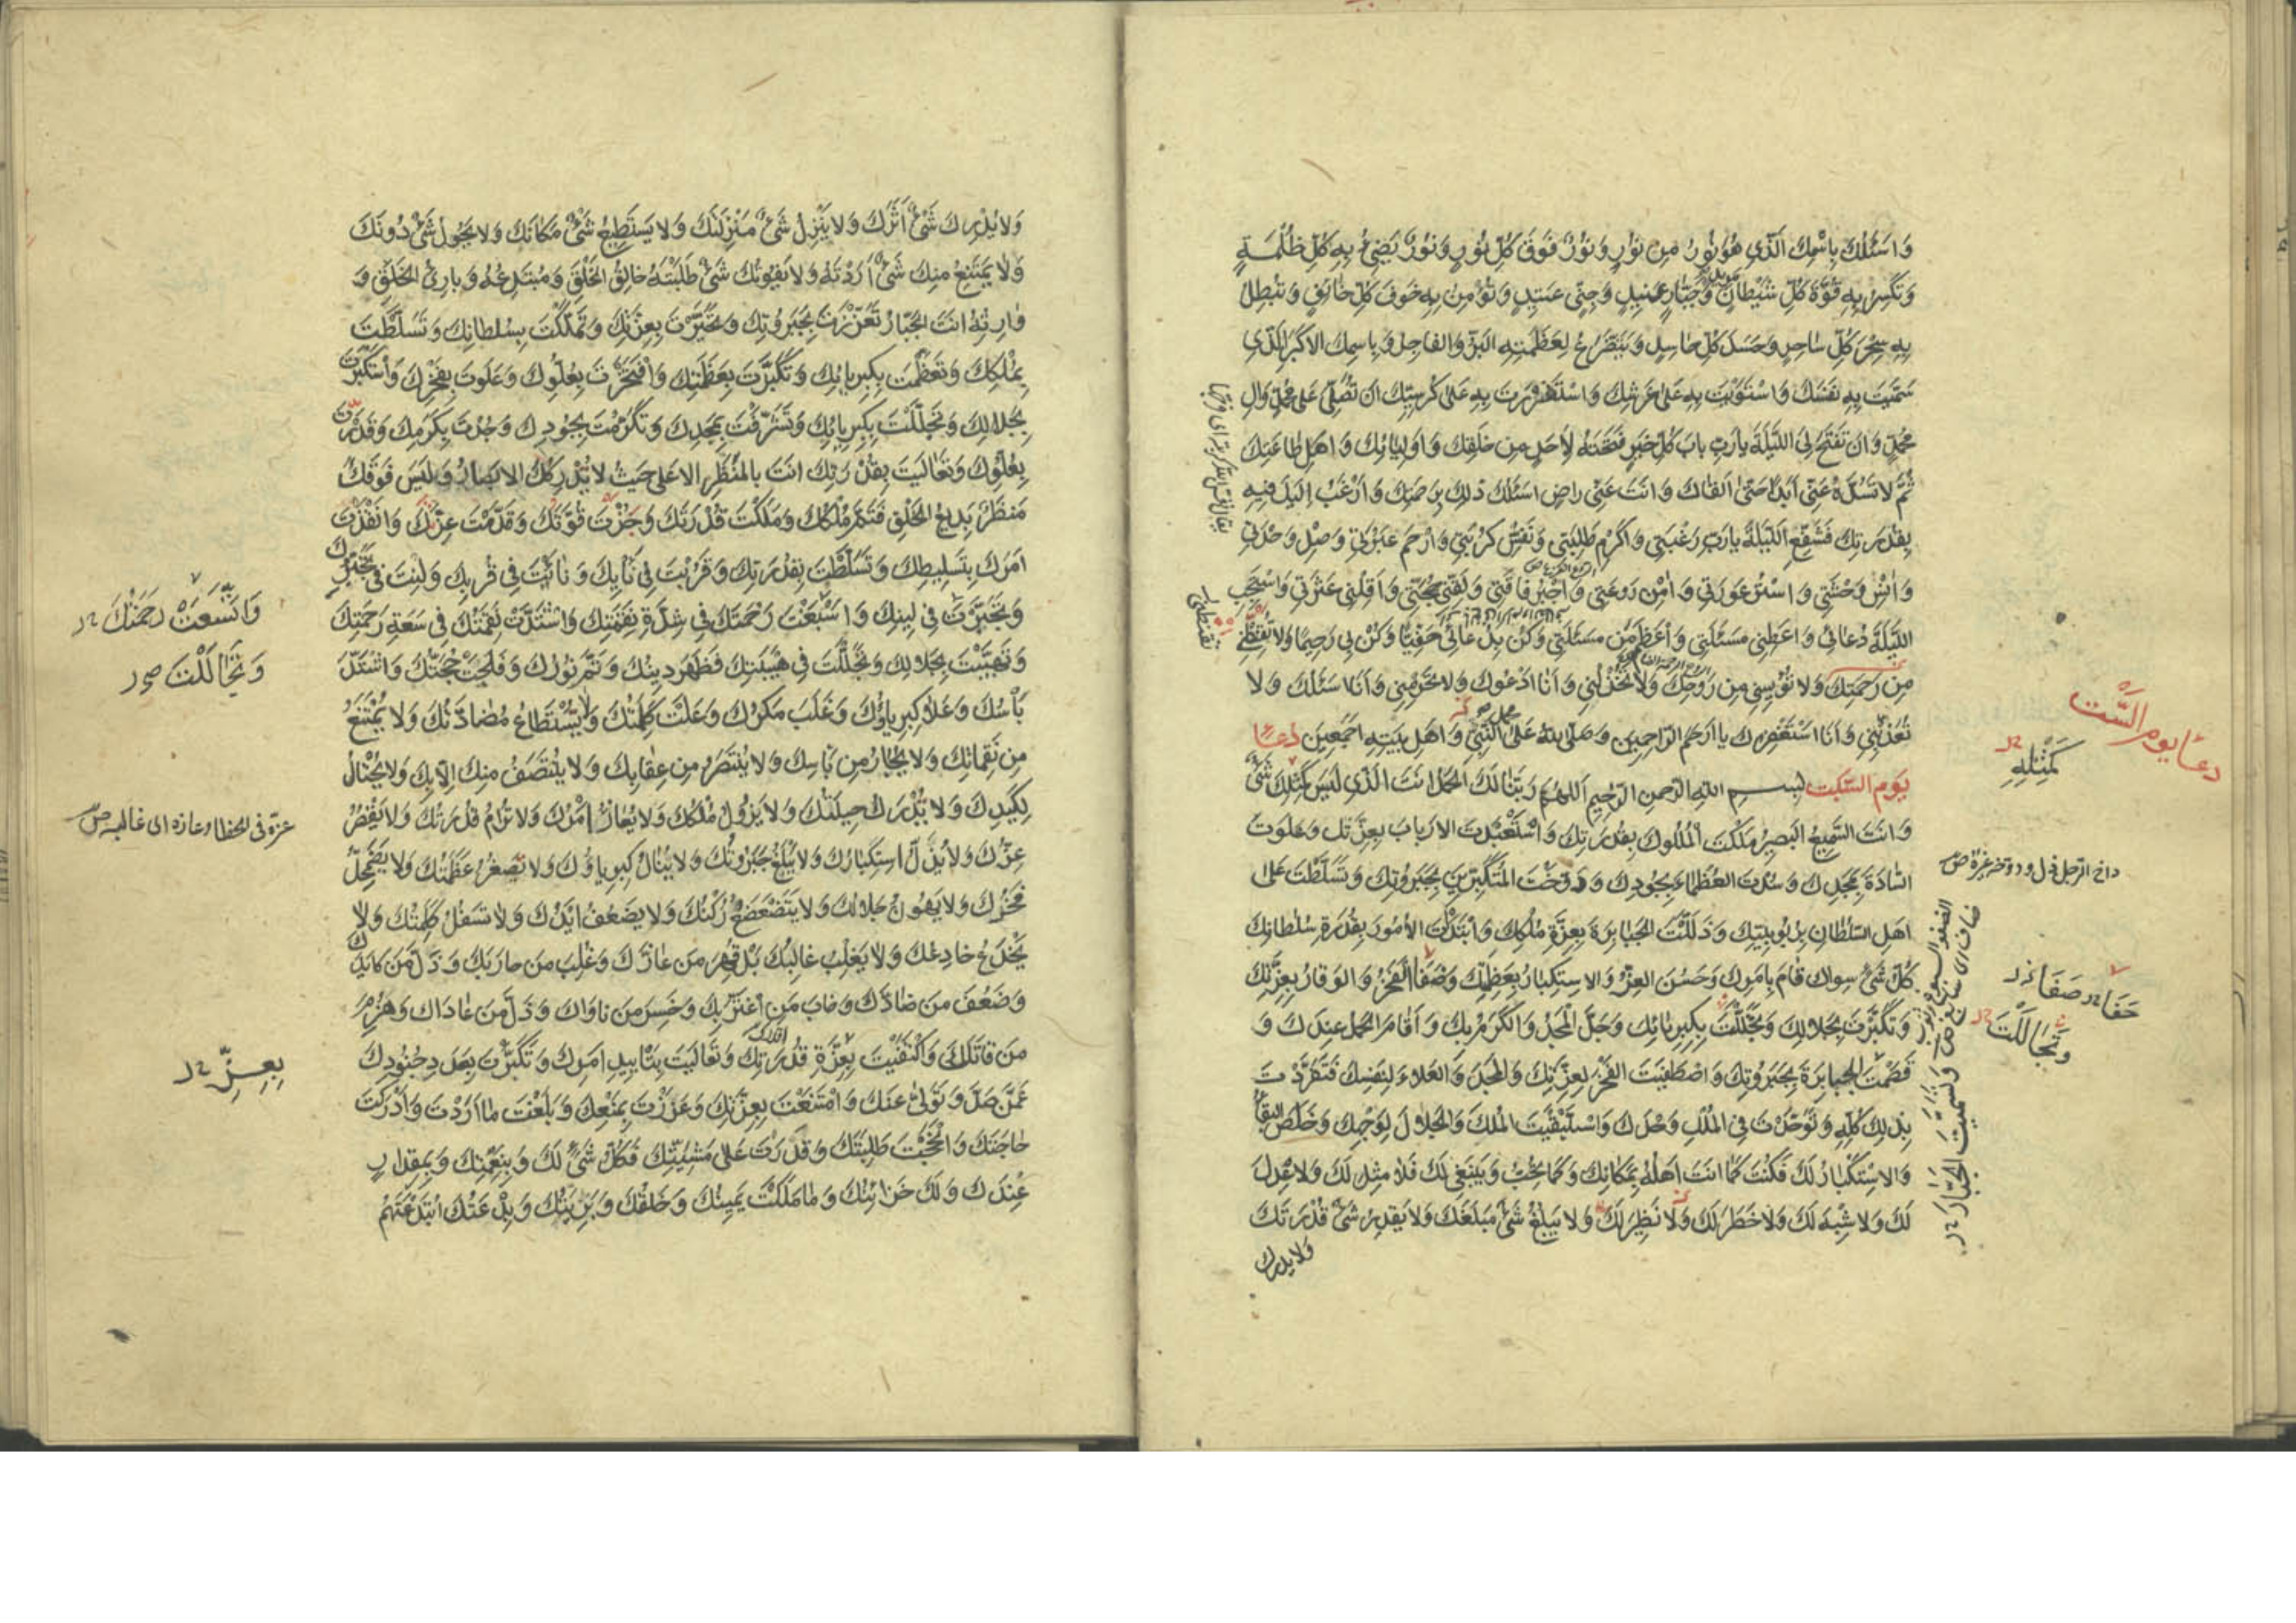 وَاَسْئَلُكَ بِاسْمِكَ الَّذِي هُوَ نُورٌ مِن نُورٍ وَنُورٌ فَوقَ كُلِّ نُورٍ وَنُورٌ يُضِئُ بِهِ كُلُّ ظُلْمَةٍ
وَتَكْسِرُ بِهِ قُوَّةَ كُلِّ شَيْطَانٍ وَجَبَّارٍ عَنِيدٍ وَجِنِّيٍ عَتِيدٍ وَتُؤْمِنُ بِهِ خَوفَ كُلِّ خَائِفٍ وَتُبْطِلُ
بِهِ سِحْرَ كُلِّ سَاحِرٍ وَحَسَدَ كُلِّ حَاسِدٍ وَيَتَضَرَّعُ لِعَظَمَتِهِ البَرُّ وَالفَاجِرُ وَبِاسمِكَ الاَكْبَرِ الَّذِي
سَمَّيْتَ بِهِ نَفْسَكَ وَاسْتَوَيْتَ بِهِ عَلَى عَرشِكَ وَاسْتَقْرَرتَ بِهِ عَلَى كُرْسِيِّكَ اَن تُصَلِّيَ عَلَى مُحَمَّدٍ وَالِ
مُحَمَّدٍ وَاَن تَفْتَحَ لِيَ اللَّيْلَةَ يَارَبِّ بَابَ كُلِّ خَيرٍ فَتَحتَهُ لِاَحَدٍ مِن خَلقِكَ وَاَولِيَائِكَ وَاَهلِ طَاعَتِكَ
ثُمَّ لَا تَسُدَّهُ عَنِّي اَبَدًا حَتّى اَلقَاكَ وَاَنتَ عَنِّي رَاضٍ اَسئَلُكَ ذٰلِكَ بِرَحمَتِكَ وَاَرْغَبُ اِلَيكَ فِيهِ
بِقُدرَتِكَ فَشَفِّعِ اللَّيْلَةَ يَارَبِّ رَغْبَتِي وَاَكْرِم طَلِبَتِي وَنَفِّسْ كُرْبَتِي وَارْحَم عَبْرَتِي وَصِلْ وَحْدَتِي
وَاٰنِسْ وَحْشَتِي وَاسْتُرْ عَورَتِي وَاٰمِنْ رَوعَتِي وَاجْبُرْ فَاقَتِي وَلَقِّنِي حُجَّتِي وَاَقِلْنِي عَثْرَتِي وَاسْتَجِبِ
اللَّيْلَةَ دُعَائِي وَاَعطِنِي مَسئَلَتِي وَاَعْظَمَ مِنْ مَسئَلَتِي وَكُن بِدُعَائِي حَفِيًّا وَكُنْ بِي رَحِيمًا وَلَا تُقَنِّطْنِي
مِن رَحْمَتِكَ وَلَا تُؤيِسنِي مِن رَوحِكَ وَلَا تَخْذُلْنِي وَاَنَا اَدْعُوكَ وَلَا تَحْرِمْنِي وَاَنَا اَسئَلُكَ وَلَا
تُعَذِّبْنِي وَاَنَا اَسْتَغْفِرُكَ يَا اَرحَمَ الرَّاحِمِينَ وَصَلَّى اللهُ عَلَى النَّبِيِّ وَاَهلِ بَيتِهِ اَجْمَعِينَ دُعَاءُ
يَومِ السَّبْتِ بسم اللهِ الرَّحمنِ الرَّحِيمِ اَللّهُمَّ رَبَّنَا لَكَ الحَمدُ اَنتَ الَّذِي لَيسَ كَمِثْلِكَ شَئٌ
وَاَنتَ السَّمِيعُ البَصِيرُ مَلَكْتَ المُلُوكَ بِقُدرَتِكَ وَاسْتَعْبَدْتَ الاَربَابَ بِعِزَّتِكَ وَعَلَوتَ
السَّادَةَ بِمَجدِكَ وَسُدْتَ العُظَمَاءَ بِجُودِكَ وَدَوَّخْتَ المُتَكَبِّرِينَ بِجَبَرُوتِكَ وَتَسَلَّطْتَ عَلَى
اَهلِ السُّلطَانِ بِرُبُوبِيَّتِكَ وَذَلَّلْتَ الجَبَابِرَةَ بِعِزَّةِ مُلكِكَ وَابْتَدَأتَ الاُمُورَ بِقُدرَةِ سُلطَانِكَ
كُلُّ شَئٍ سِوَاكَ قَامَ بِاَمرِكَ وَحَسُنَ العِزُّ وَالاِستِكبَارُ بِعَظَمَتِكَ وَضَفَا الفَخْرُ وَالوَقَارُ بِعِزَّتِكَ
وَتَكَبَّرْتَ بِجَلَالِكَ وَتَجَلَّلْتَ بِكِبرِيَائِكَ وَجَلَّ المَجدُ وَالكَرَمُ بِكَ وَاَقَامَ الحَمدُ عِندَكَ وَ
قَصَمْتَ الجَبَابِرَةَ بِجَبَرُوتِكَ وَاصْطَفَيتَ الفَخْرَ لِعِزَّتِكَ وَالمَجدَ وَالعَلَاءَ لِنَفسِكَ فَتَفَرَّدْتَ
بِذٰلِكَ كُلِّهِ وَتَوَحَّدْتَ فِي المُلكِ وَحدَكَ وَاسْتَبْقَيتَ المُلكَ وَالجَلَالَ لِوَجهِكَ وَخَلَصَ البَقَاءُ
وَالاِسْتِكبَارُ لَكَ فَكُنتَ كَمَا اَنتَ اَهلُهُ بِمَكَانِكَ وَكَمَا تُحِبُّ وَيَنبَغِي لَكَ فَلَا مِثلَ لَكَ وَلَا عِدلَ
لَكَ وَلَا شِبهَ لَكَ وَلَا خَطَرَ لَكَ وَلَا نَظِيرَ لَكَ وَلَا يَبلُغُ شَئٌ مَبلَغَكَ وَلَا يَقدِرُ شَئٌ قُدرَتَكَ
وَلَا يدرك
دعاء يوم السَّبت
كَمِثْلِهِ
وَتَجَالَلْتَ
وَلَا يُدرِكُ شَئٌ اَثَرَكَ وَلَا يَنْزِلُ شَئٌ مَنْزِلَتَكَ وَلَا يَستَطِيعُ شَئٌ مَكَانَكَ وَلَا يَحُولُ شَئٌ دُونَكَ
وَلَا يَمتَنِعُ مِنكَ شَئٌ اَرَدْتَهُ وَلَا يَفُوتُكَ شَئٌ طَلَبْتَهُ خَالِقُ الخَلْقِ وَمُبتَدِعُهُ وَبَارِئُ الخَلقِ وَ
وَارِثُهُ اَنتَ الجَبَّارُ تَعَزَّزْتَ بِجَبَرُوتِكَ وَتَجَبَّرْتَ بِعِزَّتِكَ وَتَمَلَّكْتَ بِسُلطَانِكَ وَتَسَلَّطْتَ
بِمُلكِكَ وَتَعَظَّمْتَ بِكِبرِيَائِكَ وَتَكَبَّرْتَ بِعَظَمَتِكَ وَافْتَخَرْتَ بِعُلُوِّكَ وَعَلَوتَ بِفَخْرِكَ وَاسْتَكْبَرْتَ
بِجَلَالِكَ وَتَجَلَّلْتَ بِكِبرِيَائِكَ وَتَشَرَّفْتَ بِمَجدِكَ وَتَكَرَّمْتَ بِجُودِكَ وَجُدْتَ بِكَرَمِكَ وَقَدَرْتَ
بِعُلُوِّكَ وَتَعَالَيتَ بِقُدْرَتِكَ اَنتَ بِالمَنْظَرِ الاَعلَى حَيثُ لَا تُدْرِكُكَ الاَبصَارُ وَلَيسَ فَوقَكَ
مَنظَرٌ بَدِيعُ الخَلقِ فَتَمَّ مُلكُكَ وَمَلَكْتَ قُدْرَتَكَ وَجُزْتَ قُوَّتَكَ وَقَدَّمْتَ عِزَّكَ وَاَنفَذْتَ
اَمرَكَ بِتَسلِيطِكَ وَتَسَلَّطْتَ بِقُدرَتِكَ وَقَرُبْتَ فِي نَأيِكَ وَنَاَيتَ فِي قُربِكَ وَلِنْتَ فِي تَجَبُّرِكَ
وَتَجَبَّرْتَ فِي لِينِكَ وَاتَّسَعَتْ رَحْمَتُكَ فِي شِدَّةِ نِقْمَتِكَ وَاشْتَدَّتْ نِقْمَتُكَ فِي سَعَةِ رَحْمَتِكَ
وَتَهَيَّبْتَ بِجَلَالِكَ وَتَجَلَّلْتَ فِي هَيْبَتِكَ فَظَهَرَ دِينُكَ وَتَمَّ نُورُكَ وَفَلَجَتْ حُجَّتُكَ وَاشْتَدَّ
بَأسُكَ وَعَلَا كِبرِيَاؤُكَ وَغَلَبَ مَكرُكَ وَعَلَتْ كَلِمَتُكَ وَلَا يُسْتَطَاعُ مُضَادَّتُكَ وَلَا يُمْتَنَعُ
مِن نَقِمَاتِكَ وَلَا يُجَارُ مِن بَأسِكَ وَلَا يُنْتَصَرُ مِن عِقَابِكَ وَلَا يُنْتَصَفُ مِنكَ اِلَّا بِكَ وَلَا يُحْتَالُ
لِكَيدِكَ وَلَا تُدْرَكُ حِيلَتُكَ وَلَا يَزُولُ مُلكُكَ وَلَا يُعَازُّ اَمْرُكَ وَلَا تُرَامُ قُدرَتُكَ وَلَا يَقْصُرُ
عِزُّكَ وَلَا يُذَلُّ اسْتِكبَارُكَ وَلَا تُبْلَغُ جَبَرُوتُكَ وَلَا يُنَالُ كِبرِيَاؤُكَ وَلَا تَصغُرُ عَظَمَتُكَ وَلَا يَضْمَحِلُّ
فَخْرُكَ وَلَا يَهُونُ جَلَالُكَ وَلَا يَتَضَعْضَعُ رُكنُكَ وَلَا يَضعُفُ اَيْدُكَ وَلَا تَسفُلُ كَلِمَتُكَ وَلَا
يُخْدَعُ خَادِعُكَ وَلَا يَغلِبُ غَالِبُكَ بَلْ قُهِرَ مَن عَازَّكَ وَغُلِبَ مَن حَارَبَكَ وَذَلَّ مَن كَايَدَكَ
وَضَعُفَ مَن ضَادَّكَ وَخَابَ مَن اغتَرَّ بِكَ وَخَسِرَ مَن نَاوَاكَ وَذَلَّ مَن عَادَاكَ وَهُزِمَ
مَن قَاتَلَكَ وَاكْتَفَيْتَ بِعِزَّةِ قُدرَتِكَ وَتَعَالَيتَ بِتَايِيدِ اَمرِكَ وَتَكَبَّرْتَ بِعَدَدِ جُنُودِكَ
عَمَّن صَدَّ وَتَوَلَّى عَنكَ وَامْتَنَعْتَ بِعِزَّتِكَ وَعَزَزْتَ بِمَنْعِكَ وَبَلَغْتَ مَا اَرَدْتَ وَاَدرَكْتَ
حَاجَتَكَ وَاَنْجَحْتَ طَلِبَتَكَ وَقَدَرتَ عَلَى مَشِيَّتِكَ فَكُلُّ شَئٍ لَكَ وَبِنِعْمَتِكَ وَبِمِقدَارٍ
عِندَكَ وَلَكَ خَزَائِنُكَ وَمَا مَلَكَتْ يَمِينُكَ وَخَلقُكَ وَبَرِيَّتُكَ وَبِدْعَتُكَ ابْتَدَعْتَهُم
وَاتَّسَعَتْ رَحْمَتُكَ
وَتَجَالَلْتَ
بِعِزِّ